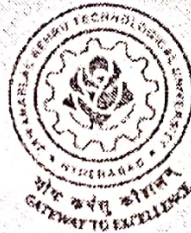 JAWAHARLAL NEHRU TECHNOLOGICAL UNIVERSITY
HYDERABAD
योगः कर्मसु कौशलम्
GATEWAY TO EXCELLENCE